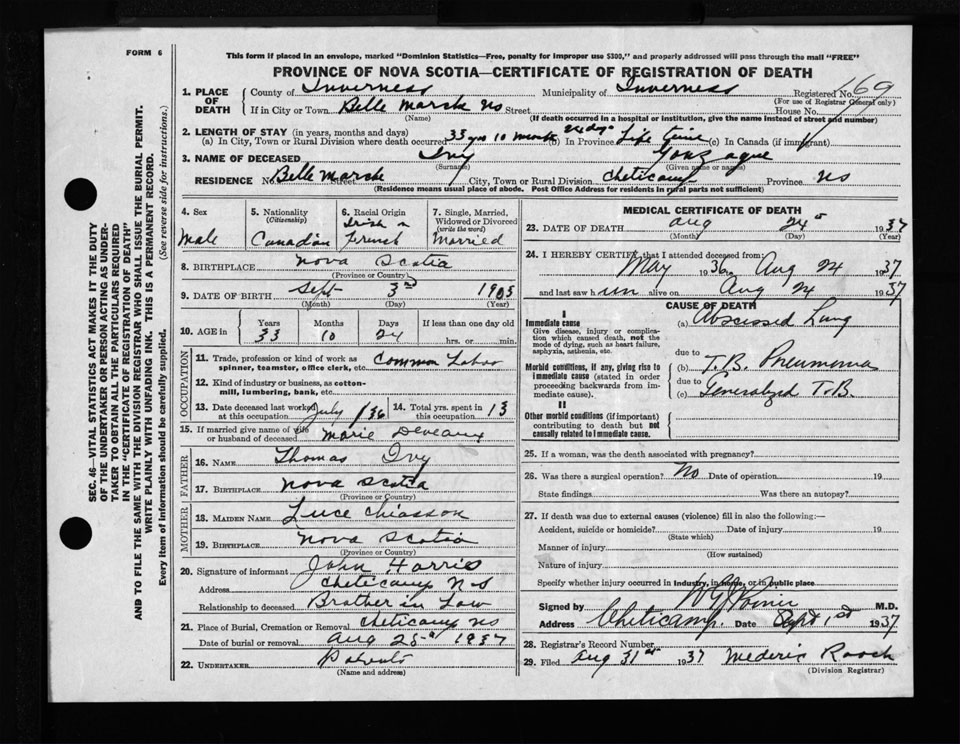 FORM 6
This form if placed in an envelope, marked "Dominion Statistics—Free, penalty for improper use $300," and properly addressed will pass through the mail "FREE"
PROVINCE OF NOVA SCOTIA—CERTIFICATE OF REGISTRATION OF DEATH
1. PLACE OF DEATH
County of Inverness Municipality of Inverness Registered No. 169
(For use of Registrar General only)
If in City or Town Belle Marsh NS Street House No.
(Name) (If death occurred in a hospital or institution, give the name instead of street and number)
2. LENGTH OF STAY (in years, months and days)
(a) In City, Town or Rural Division where death occurred 33 yrs 10 months 24 dys (b) In Province Life time (c) In Canada (if immigrant)
3. NAME OF DECEASED Ivy Gonzague
(Surname) (Given name or names)
RESIDENCE No. Belle Marsh Street City, Town or Rural Division Cheticamp Province NS
(Residence means usual place of abode. Post Office Address for residents in rural parts not sufficient)
SEC. 46—VITAL STATISTICS ACT MAKES IT THE DUTY
OF THE UNDERTAKER OR PERSON ACTING AS UNDER-
TAKER TO OBTAIN ALL THE PARTICULARS REQUIRED
IN THE "CERTIFICATE OF REGISTRATION OF DEATH"
AND TO FILE THE SAME WITH THE DIVISION REGISTRAR WHO SHALL ISSUE THE BURIAL PERMIT.
WRITE PLAINLY WITH UNFADING INK. THIS IS A PERMANENT RECORD.
Every item of information should be carefully supplied. (See reverse side for instructions.)
4. Sex
Male
5. Nationality
(Citizenship)
Canadian
6. Racial Origin
Irish
French
7. Single, Married,
Widowed or Divorced
(write the word)
Married
8. BIRTHPLACE Nova Scotia
(Province or Country)
9. DATE OF BIRTH Sept 3rd 1903
(Month) (Day) (Year)
10. AGE in
Years Months Days If less than one day old
33 10 24 hrs. or min.
OCCUPATION
11. Trade, profession or kind of work as
spinner, teamster, office clerk, etc. Common Labor
12. Kind of industry or business, as cotton-
mill, lumbering, bank, etc.
13. Date deceased last worked
at this occupation July 1936
14. Total yrs. spent in
this occupation 13
15. If married give name of wife
or husband of deceased Marie Deveaux
FATHER
16. NAME Thomas Ivy
17. BIRTHPLACE Nova Scotia
(Province or Country)
MOTHER
18. MAIDEN NAME Luce Chiasson
19. BIRTHPLACE Nova Scotia
(Province or Country)
20. Signature of informant John Harris
Address Cheticamp N-S
Relationship to deceased Brother in Law
21. Place of Burial, Cremation or Removal Cheticamp NS
Date of burial or removal Aug 25 1937
22. UNDERTAKER
(Name and address)
MEDICAL CERTIFICATE OF DEATH
23. DATE OF DEATH Aug 24 1937
(Month) (Day) (Year)
24. I HEREBY CERTIFY that I attended deceased from:
May 1936 Aug 24 1937
and last saw him alive on Aug 24 1937
CAUSE OF DEATH
I
Immediate cause
Give disease, injury or complica-
tion which caused death, not the
mode of dying, such as heart failure,
asphyxia, asthenia, etc.
(a) Abscessed Lung
due to
Morbid conditions, if any, giving rise to
immediate cause (stated in order
proceeding backwards from im-
mediate cause).
(b) T.B. Pneumonia
due to
(c) Generalized T.B.
II
Other morbid conditions (if important)
contributing to death but not
causally related to immediate cause.
25. If a woman, was the death associated with pregnancy?
26. Was there a surgical operation? No Date of operation 19
State findings Was there an autopsy?
27. If death was due to external causes (violence) fill in also the following:—
Accident, suicide or homicide? Date of injury 19
(State which)
Manner of injury
(How sustained)
Nature of injury
Specify whether injury occurred in industry, in home, or in public place
Signed by M.D.
Address Cheticamp. Date Sept 1st 1937
28. Registrar's Record Number
29. Filed Aug 31st 1937 Mederic Roach
(Division Registrar)